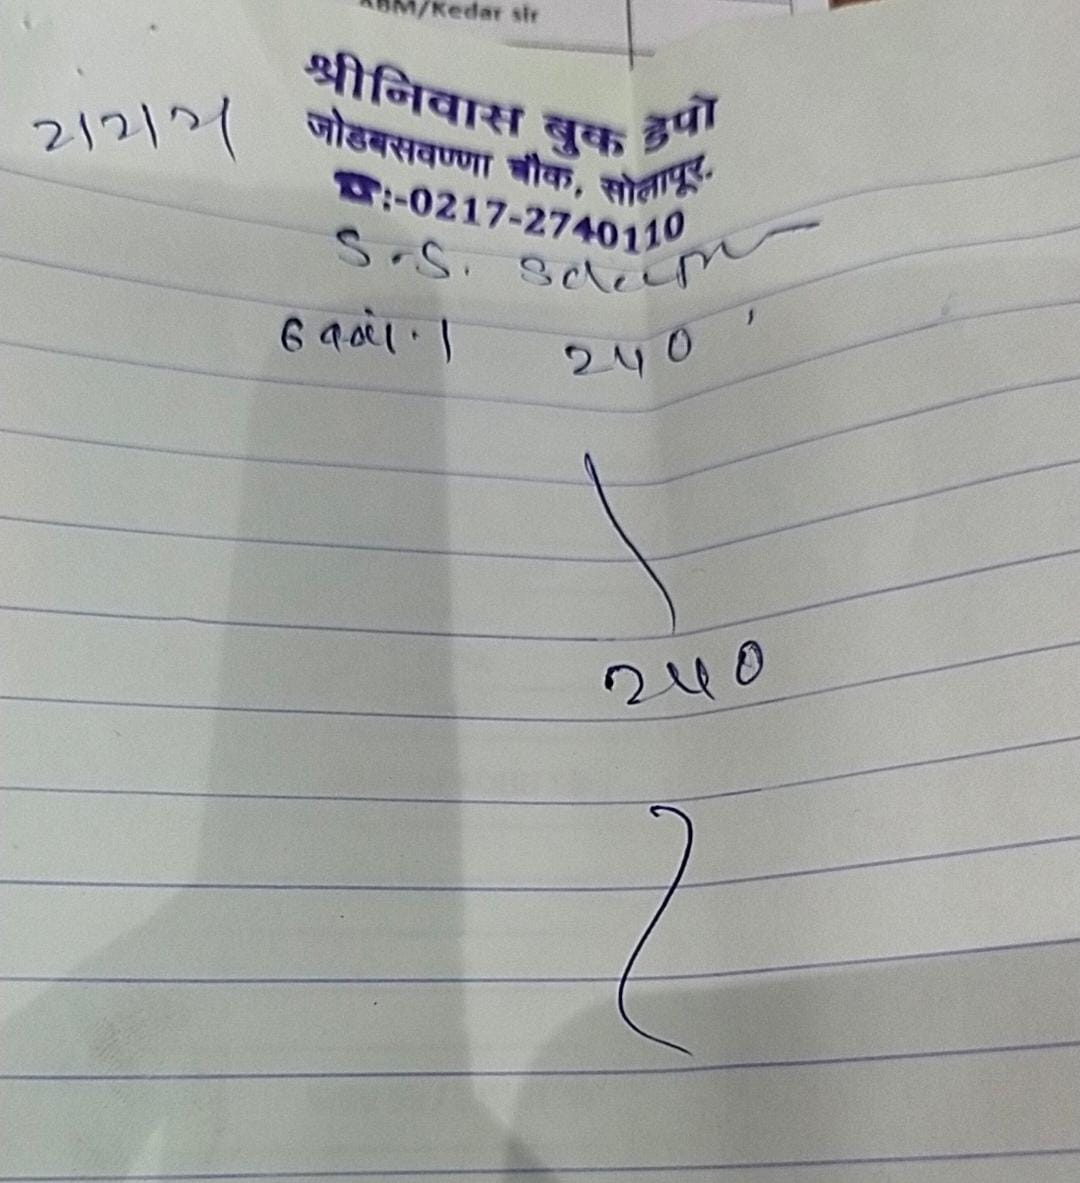 ABM/Kedar sir
2/2/21
श्रीनिवास बुक डेपो
जोडबसवण्णा चौक, सोलापूर.
☎:-0217-2740110
S.S.
6 240
240